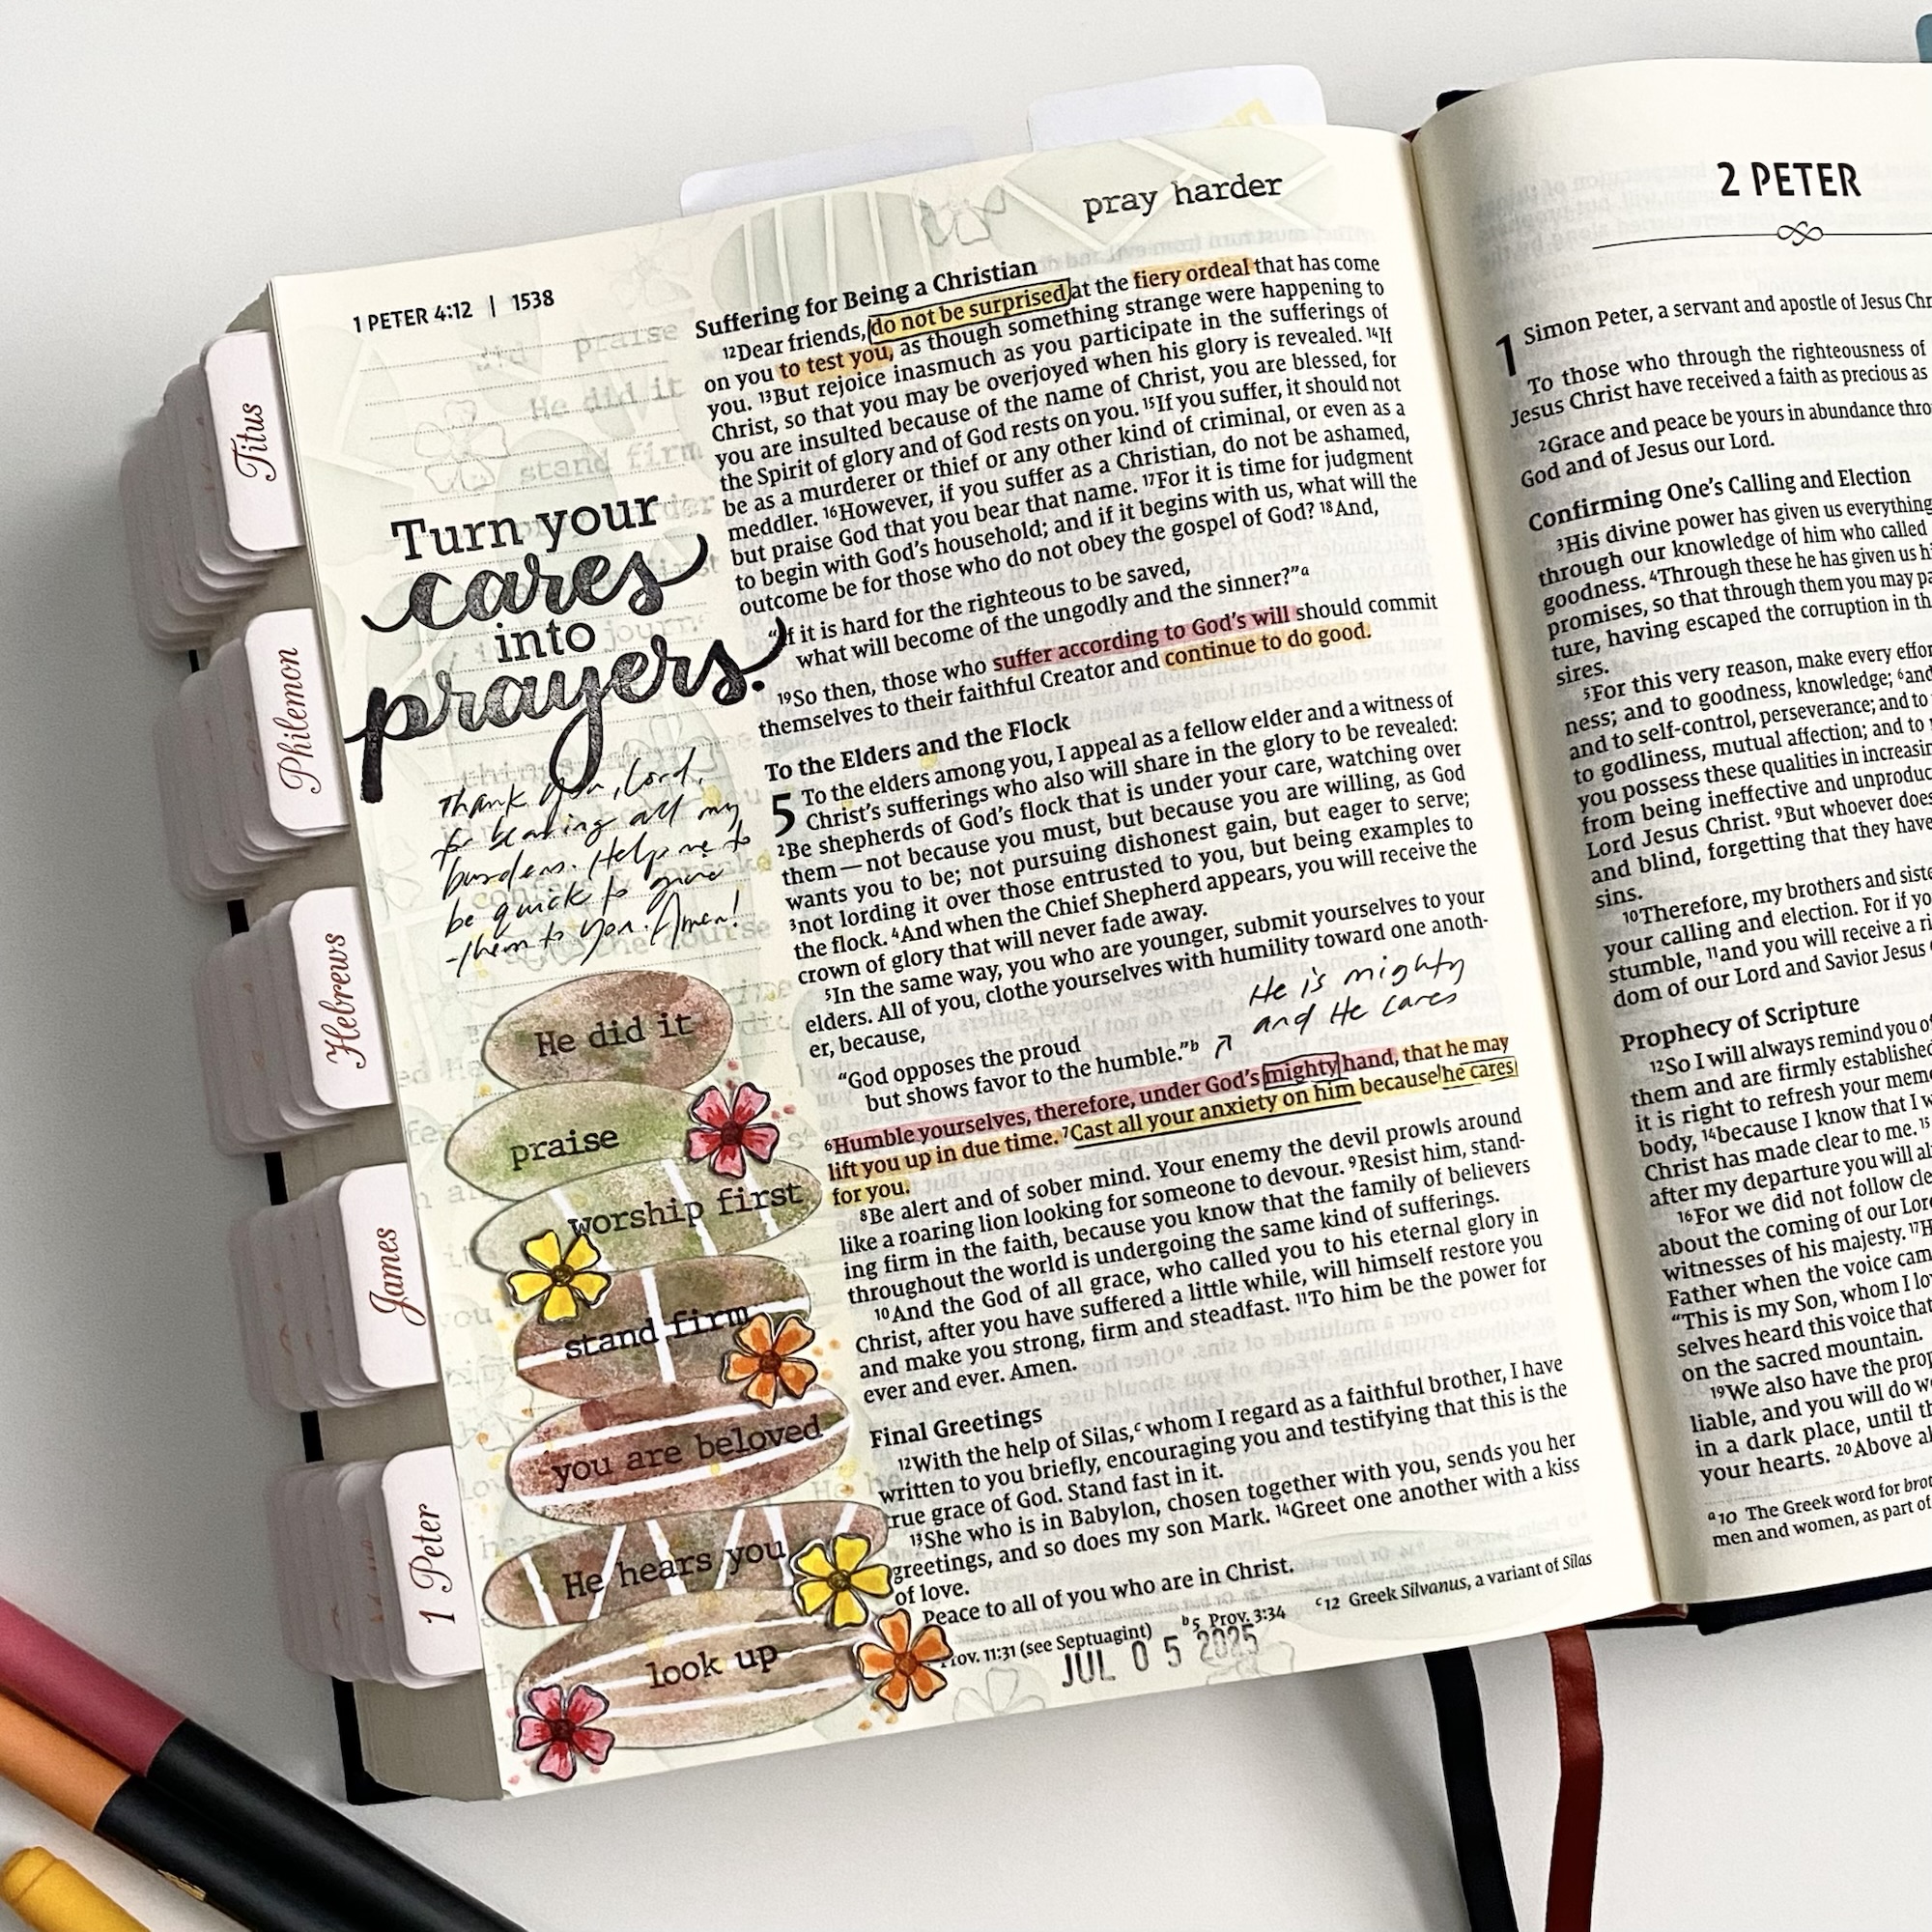 pray harder
1 PETER 4:12 | 1538
Suffering for Being a Christian
12Dear friends, do not be surprised at the fiery ordeal that has come
on you to test you, as though something strange were happening to
you. 13But rejoice inasmuch as you participate in the sufferings of
Christ, so that you may be overjoyed when his glory is revealed. 14If
you are insulted because of the name of Christ, you are blessed, for
the Spirit of glory and of God rests on you. 15If you suffer, it should not
be as a murderer or thief or any other kind of criminal, or even as a
meddler. 16However, if you suffer as a Christian, do not be ashamed,
but praise God that you bear that name. 17For it is time for judgment
to begin with God's household; and if it begins with us, what will the
outcome be for those who do not obey the gospel of God? 18And,
"If it is hard for the righteous to be saved,
what will become of the ungodly and the sinner?"a
19So then, those who suffer according to God's will should commit
themselves to their faithful Creator and continue to do good.
To the Elders and the Flock
5 To the elders among you, I appeal as a fellow elder and a witness of
Christ's sufferings who also will share in the glory to be revealed:
2Be shepherds of God's flock that is under your care, watching over
them—not because you must, but because you are willing, as God
wants you to be; not pursuing dishonest gain, but eager to serve;
3not lording it over those entrusted to you, but being examples to
the flock. 4And when the Chief Shepherd appears, you will receive the
crown of glory that will never fade away.
5In the same way, you who are younger, submit yourselves to your
elders. All of you, clothe yourselves with humility toward one anoth-
er, because,
"God opposes the proud
but shows favor to the humble."b
He is mighty
and He cares
6Humble yourselves, therefore, under God's mighty hand, that he may
lift you up in due time. 7Cast all your anxiety on him because he cares
for you.
8Be alert and of sober mind. Your enemy the devil prowls around
like a roaring lion looking for someone to devour. 9Resist him, stand-
ing firm in the faith, because you know that the family of believers
throughout the world is undergoing the same kind of sufferings.
10And the God of all grace, who called you to his eternal glory in
Christ, after you have suffered a little while, will himself restore you
and make you strong, firm and steadfast. 11To him be the power for
ever and ever. Amen.
Final Greetings
12With the help of Silas,c whom I regard as a faithful brother, I have
written to you briefly, encouraging you and testifying that this is the
true grace of God. Stand fast in it.
13She who is in Babylon, chosen together with you, sends you her
greetings, and so does my son Mark. 14Greet one another with a kiss
of love.
Peace to all of you who are in Christ.
Prov. 11:31 (see Septuagint) b5 Prov. 3:34 c12 Greek Silvanus, a variant of Silas
JUL 05 2025
Turn your
cares
into
prayers.
Thank you, Lord,
for bearing all my
burdens. Help me to
be quick to give
them to you. Amen!
He did it
praise
worship first
stand firm
you are beloved
He hears you
look up
Titus
Philemon
Hebrews
James
1 Peter
2 PETER
1 Simon Peter, a servant and apostle of Jesus
To those who through the righteousness of
Jesus Christ have received a faith as precious as
2Grace and peace be yours in abundance
God and of Jesus our Lord.
Confirming One's Calling and Election
3His divine power has given us everything
through our knowledge of him who called
goodness. 4Through these he has given us
promises, so that through them you may
ture, having escaped the corruption in
sires.
5For this very reason, make every
ness; and to goodness, knowledge; 6and
and to self-control, perseverance; and to
to godliness, mutual affection; and to
you possess these qualities in
from being ineffective and
Lord Jesus Christ. 9But whoever does
and blind, forgetting that they have
sins.
10Therefore, my brothers and
your calling and election. For if
stumble, 11and you will receive a
dom of our Lord and Savior Jesus
Prophecy of Scripture
12So I will always remind you of
them and are firmly established
it is right to refresh your
body, 14because I know that I
Christ has made clear to me. 15
after my departure you will
16For we did not follow
about the coming of our
witnesses of his majesty.
Father when the voice
"This is my Son, whom I
selves heard this voice
on the sacred mountain.
19We also have the
liable, and you will do
in a dark place, until
your hearts. 20Above
a10 The Greek word for
men and women, as part of